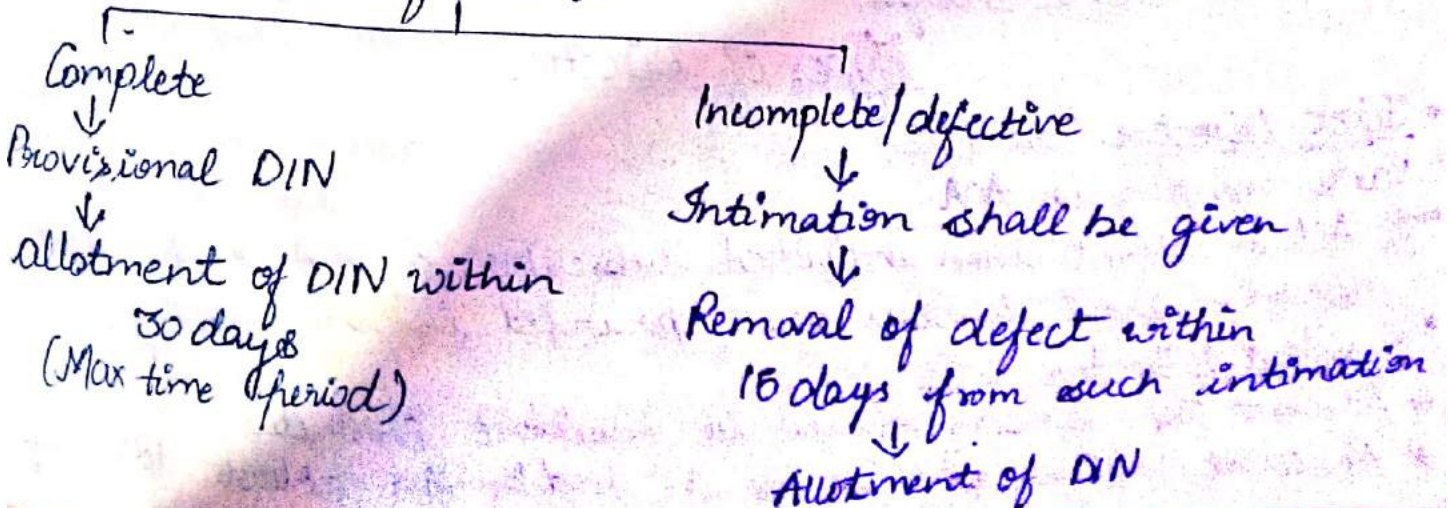 Complete
↓
Provisional DIN
↓
allotment of DIN within
30 days
(Max time period)
Incomplete/defective
↓
Intimation shall be given
↓
Removal of defect within
15 days from such intimation
↓
Allotment of DIN